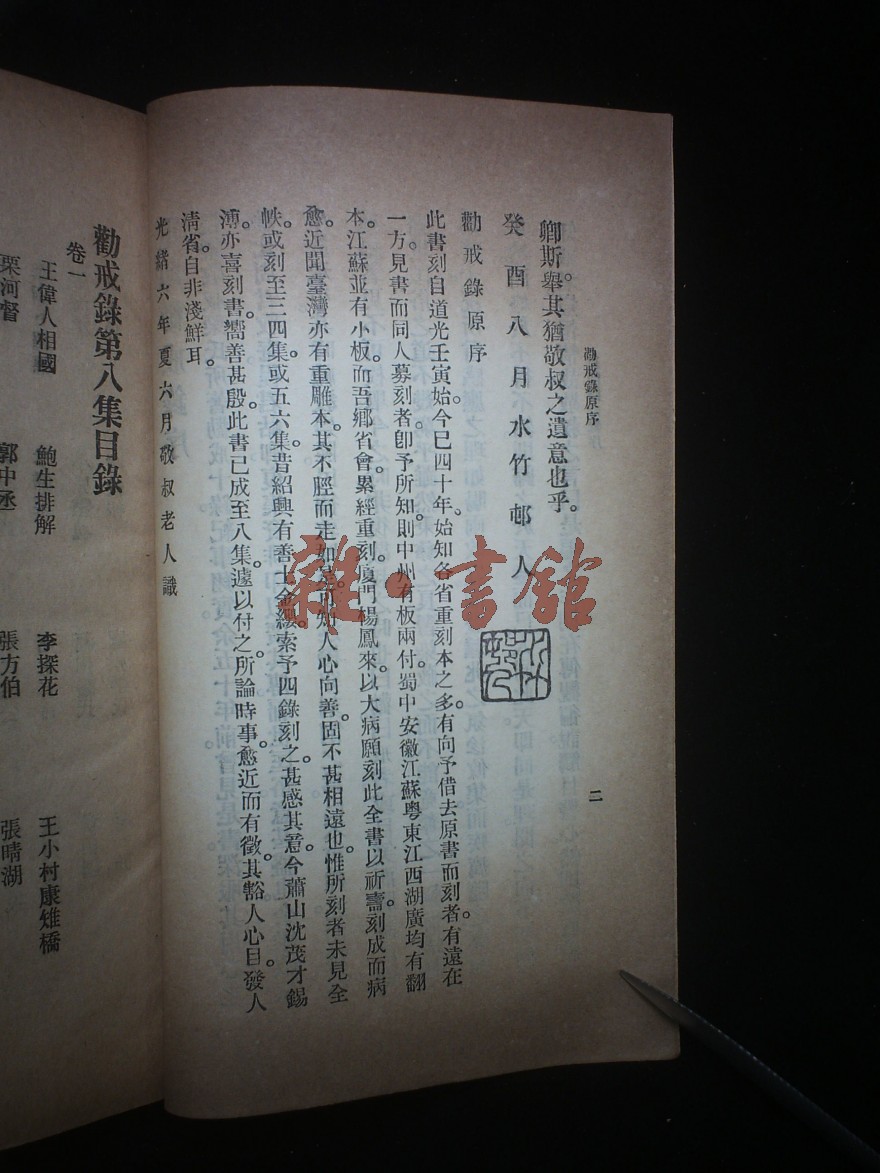 勸戒錄原序
二
卿斯舉。其猶敬叔之遺意也乎。
癸酉八月水竹邨人
勸戒錄原序
此書刻自道光壬寅。始今已四十年。始知各省重刻本之多。有向予借去原書而刻者。有遠在
一方。見書而同人募刻者。卽予所知。則中州有板兩付。蜀中安徽江蘇粵東江西湖廣均有翻
本。江蘇並有小板。而吾鄉省會。累經重刻。廈門楊鳳來。以大病願刻此全書以祈壽。刻成而病
愈。近聞臺灣亦有重雕本。其不脛而走如是。可知人心向善。固不甚相遠也。惟所刻者未見全
帙。或刻至三四集。或五六集。昔紹興有善士余纓。索予四錄刻之。甚感其意。今蕭山沈茂才錫
溥。亦喜刻書。嚮善甚殷。此書已成至八集。遽以付之。所論時事。愈近而有徵。其豁人心目。發人
淸省。自非淺鮮耳。
光緒六年夏六月敬叔老人識
勸戒錄第八集目錄
卷一
王偉人相國 鮑生排解 李探花 王小村康雉橋
栗河督 郭中丞 張方伯 張晴湖
雜·書館